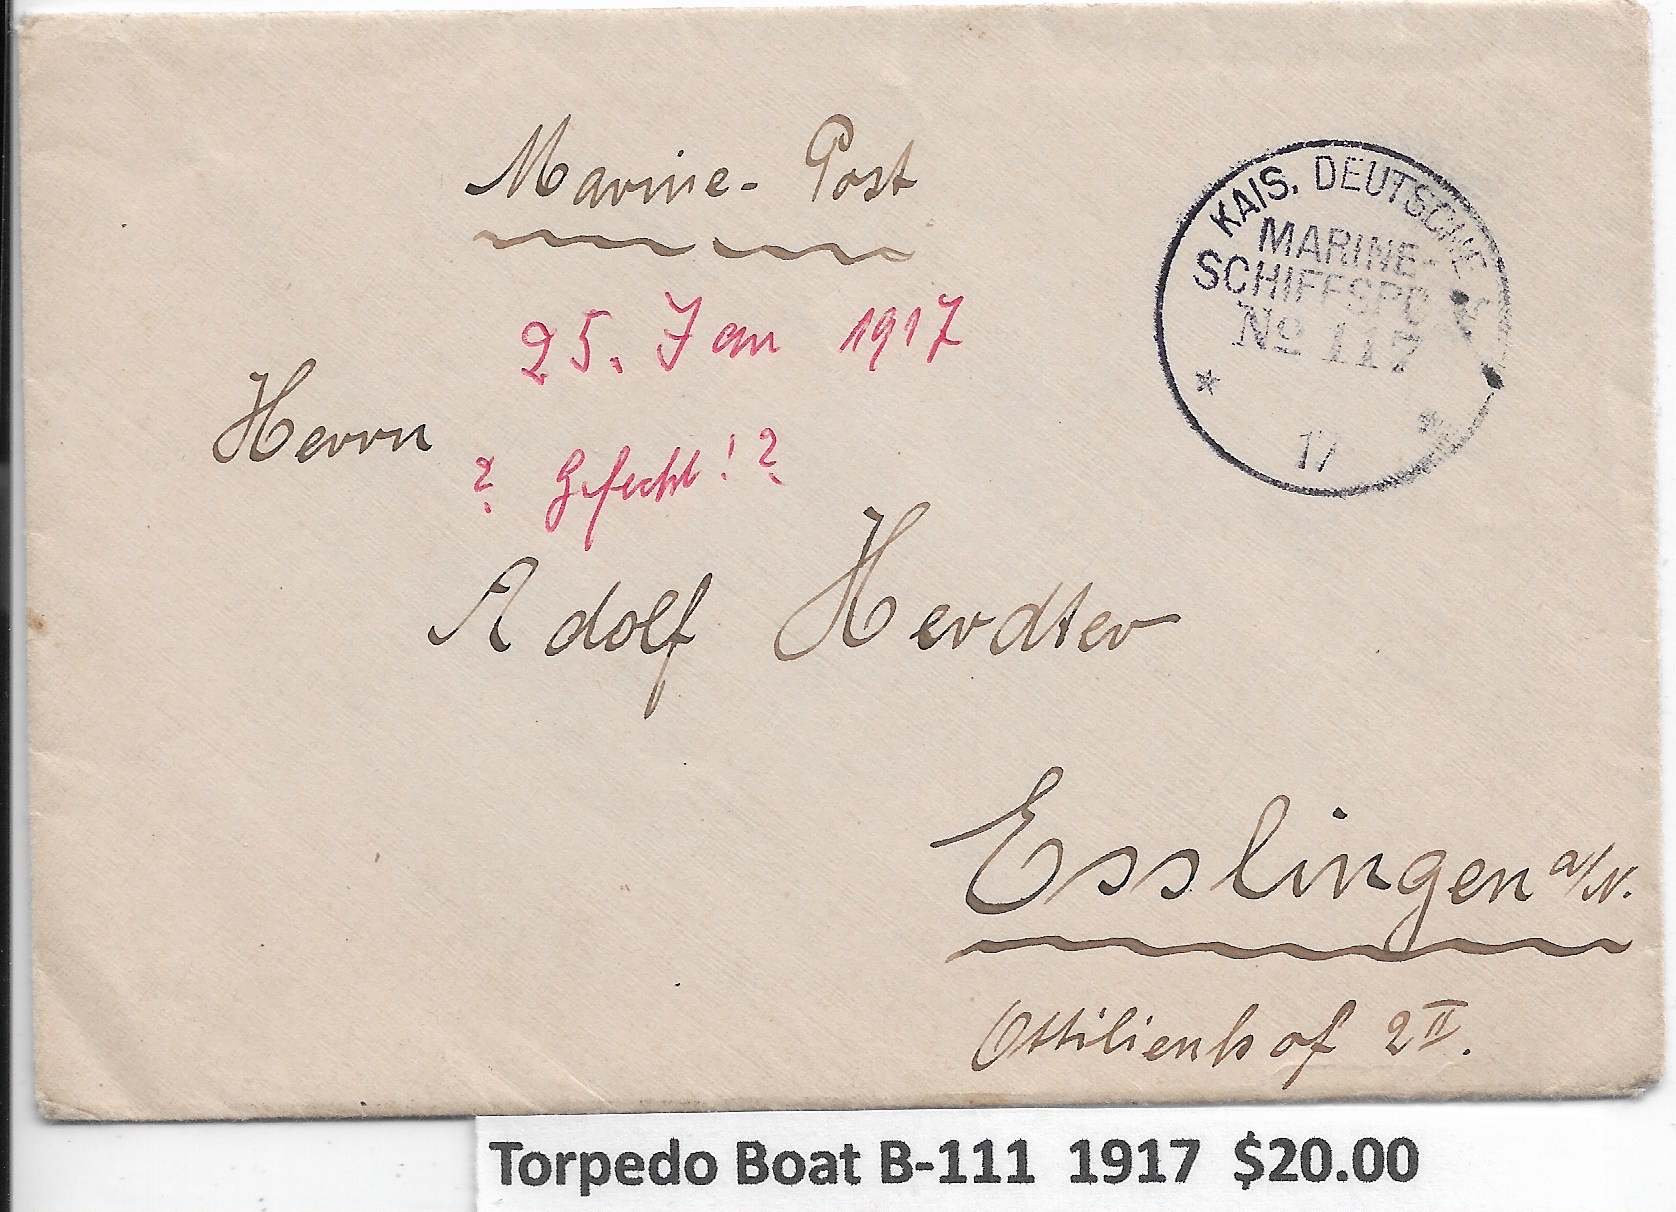 Marine-Post
KAIS. DEUTSCHE
MARINE-
SCHIFFSPO
No 117
* *
17
25. Jan 1917
Herrn
? Gefecht!?
Adolf Herdter
Esslingen a/N.
Ottilienhof 2 II.
Torpedo Boat B-111 1917 $20.00